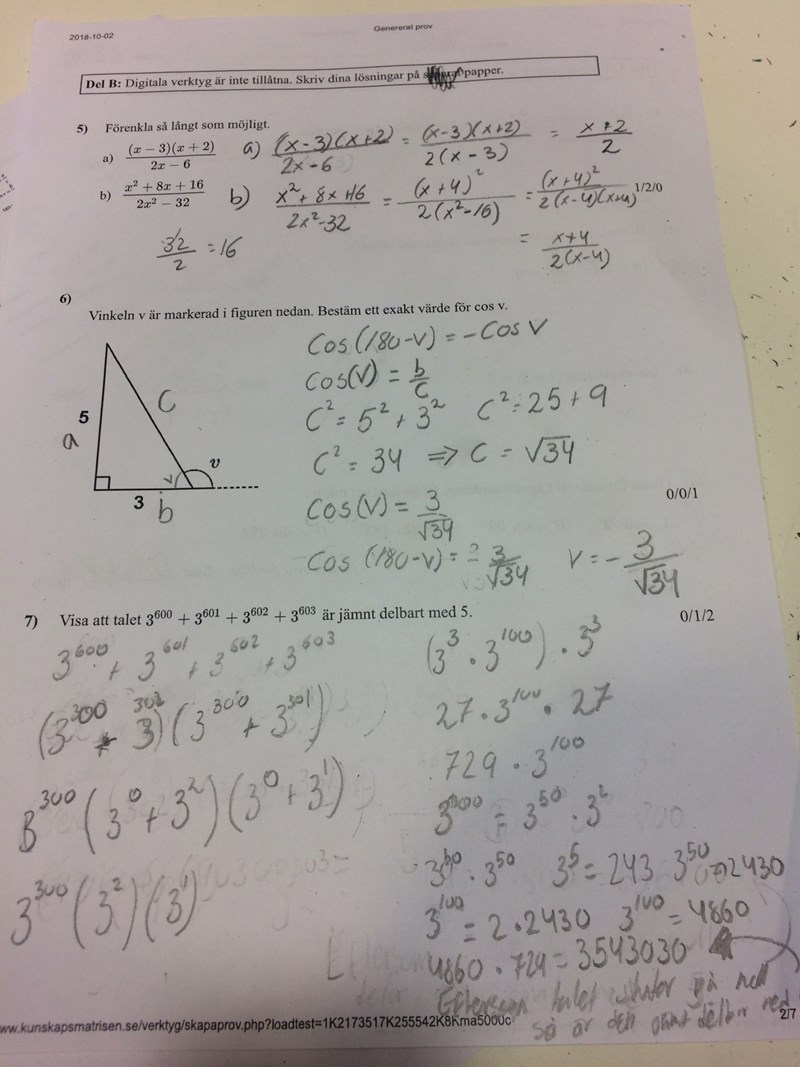 2018-10-02
Genererat prov
Del B: Digitala verktyg är inte tillåtna. Skriv dina lösningar på papper.
5) Förenkla så långt som möjligt.
a) (x − 3)(x + 2) / 2x − 6
a) (x-3)(x+2) / 2x-6 = (x-3)(x+2) / 2(x-3) = x+2 / 2
b) x² + 8x + 16 / 2x² − 32
b) x²+8x+16 / 2x²-32 = (x+4)² / 2(x²-16) = (x+4)² / 2(x-4)(x+4)
1/2/0
32/2 = 16
= x+4 / 2(x-4)
6)
Vinkeln v är markerad i figuren nedan. Bestäm ett exakt värde för cos v.
Cos(180-v) = -Cos V
Cos(v) = b/c
C² = 5² + 3² C² = 25+9
C² = 34 => C = √34
Cos(v) = 3/√34
Cos(180-v) = - 3/√34 V = - 3/√34
5
a
C
v
v
3
b
0/0/1
7) Visa att talet 3⁶⁰⁰ + 3⁶⁰¹ + 3⁶⁰² + 3⁶⁰³ är jämnt delbart med 5.
0/1/2
3⁶⁰⁰ + 3⁶⁰¹ + 3⁶⁰² + 3⁶⁰³
(3³⁰⁰ + 3³⁰²)(3³⁰⁰ + 3³⁰¹)
3³⁰⁰(3⁰+3²)(3⁰+3¹)
3³⁰⁰(3²)(3¹)
(3³ · 3¹⁰⁰) · 3³
27 · 3¹⁰⁰ · 27
729 · 3¹⁰⁰
3¹⁰⁰ = 3⁵⁰ · 3²
3⁵⁰ · 3⁵⁰ 3⁵ = 243 3⁵⁰ = 2430
3¹⁰⁰ = 2·2430 3¹⁰⁰ = 4860
4860 · 729 = 3543030
Eftersom talet slutar på noll
så är den jämt delbar med
www.kunskapsmatrisen.se/verktyg/skapaprov.php?loadtest=1K2173517K255542K8Kma5000c
2/7